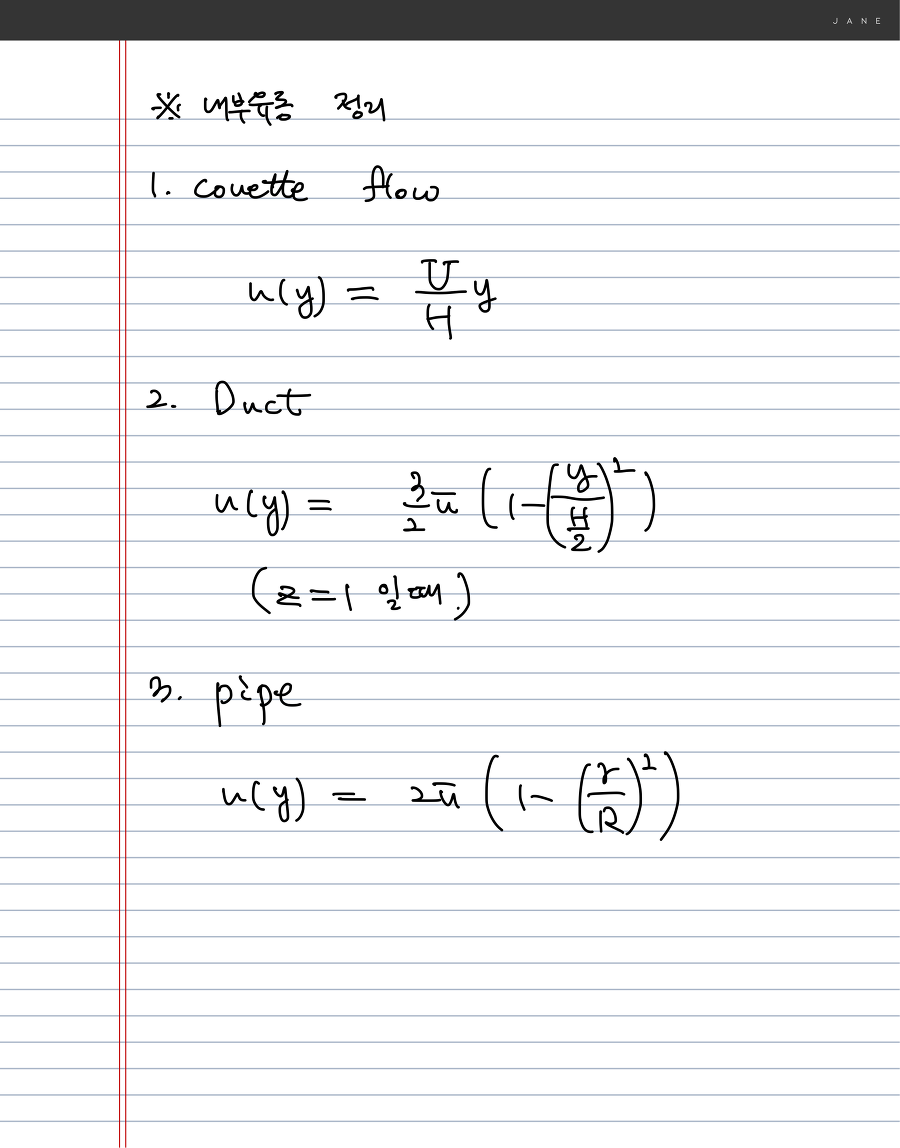 JANE
※ 내부유동 정리
1. Couette flow
u(y) = U/H y
2. Duct
u(y) = 3/2 ū (1-(y/(H/2))²)
(z=1 일때.)
3. pipe
u(y) = 2ū (1- (r/R)²)